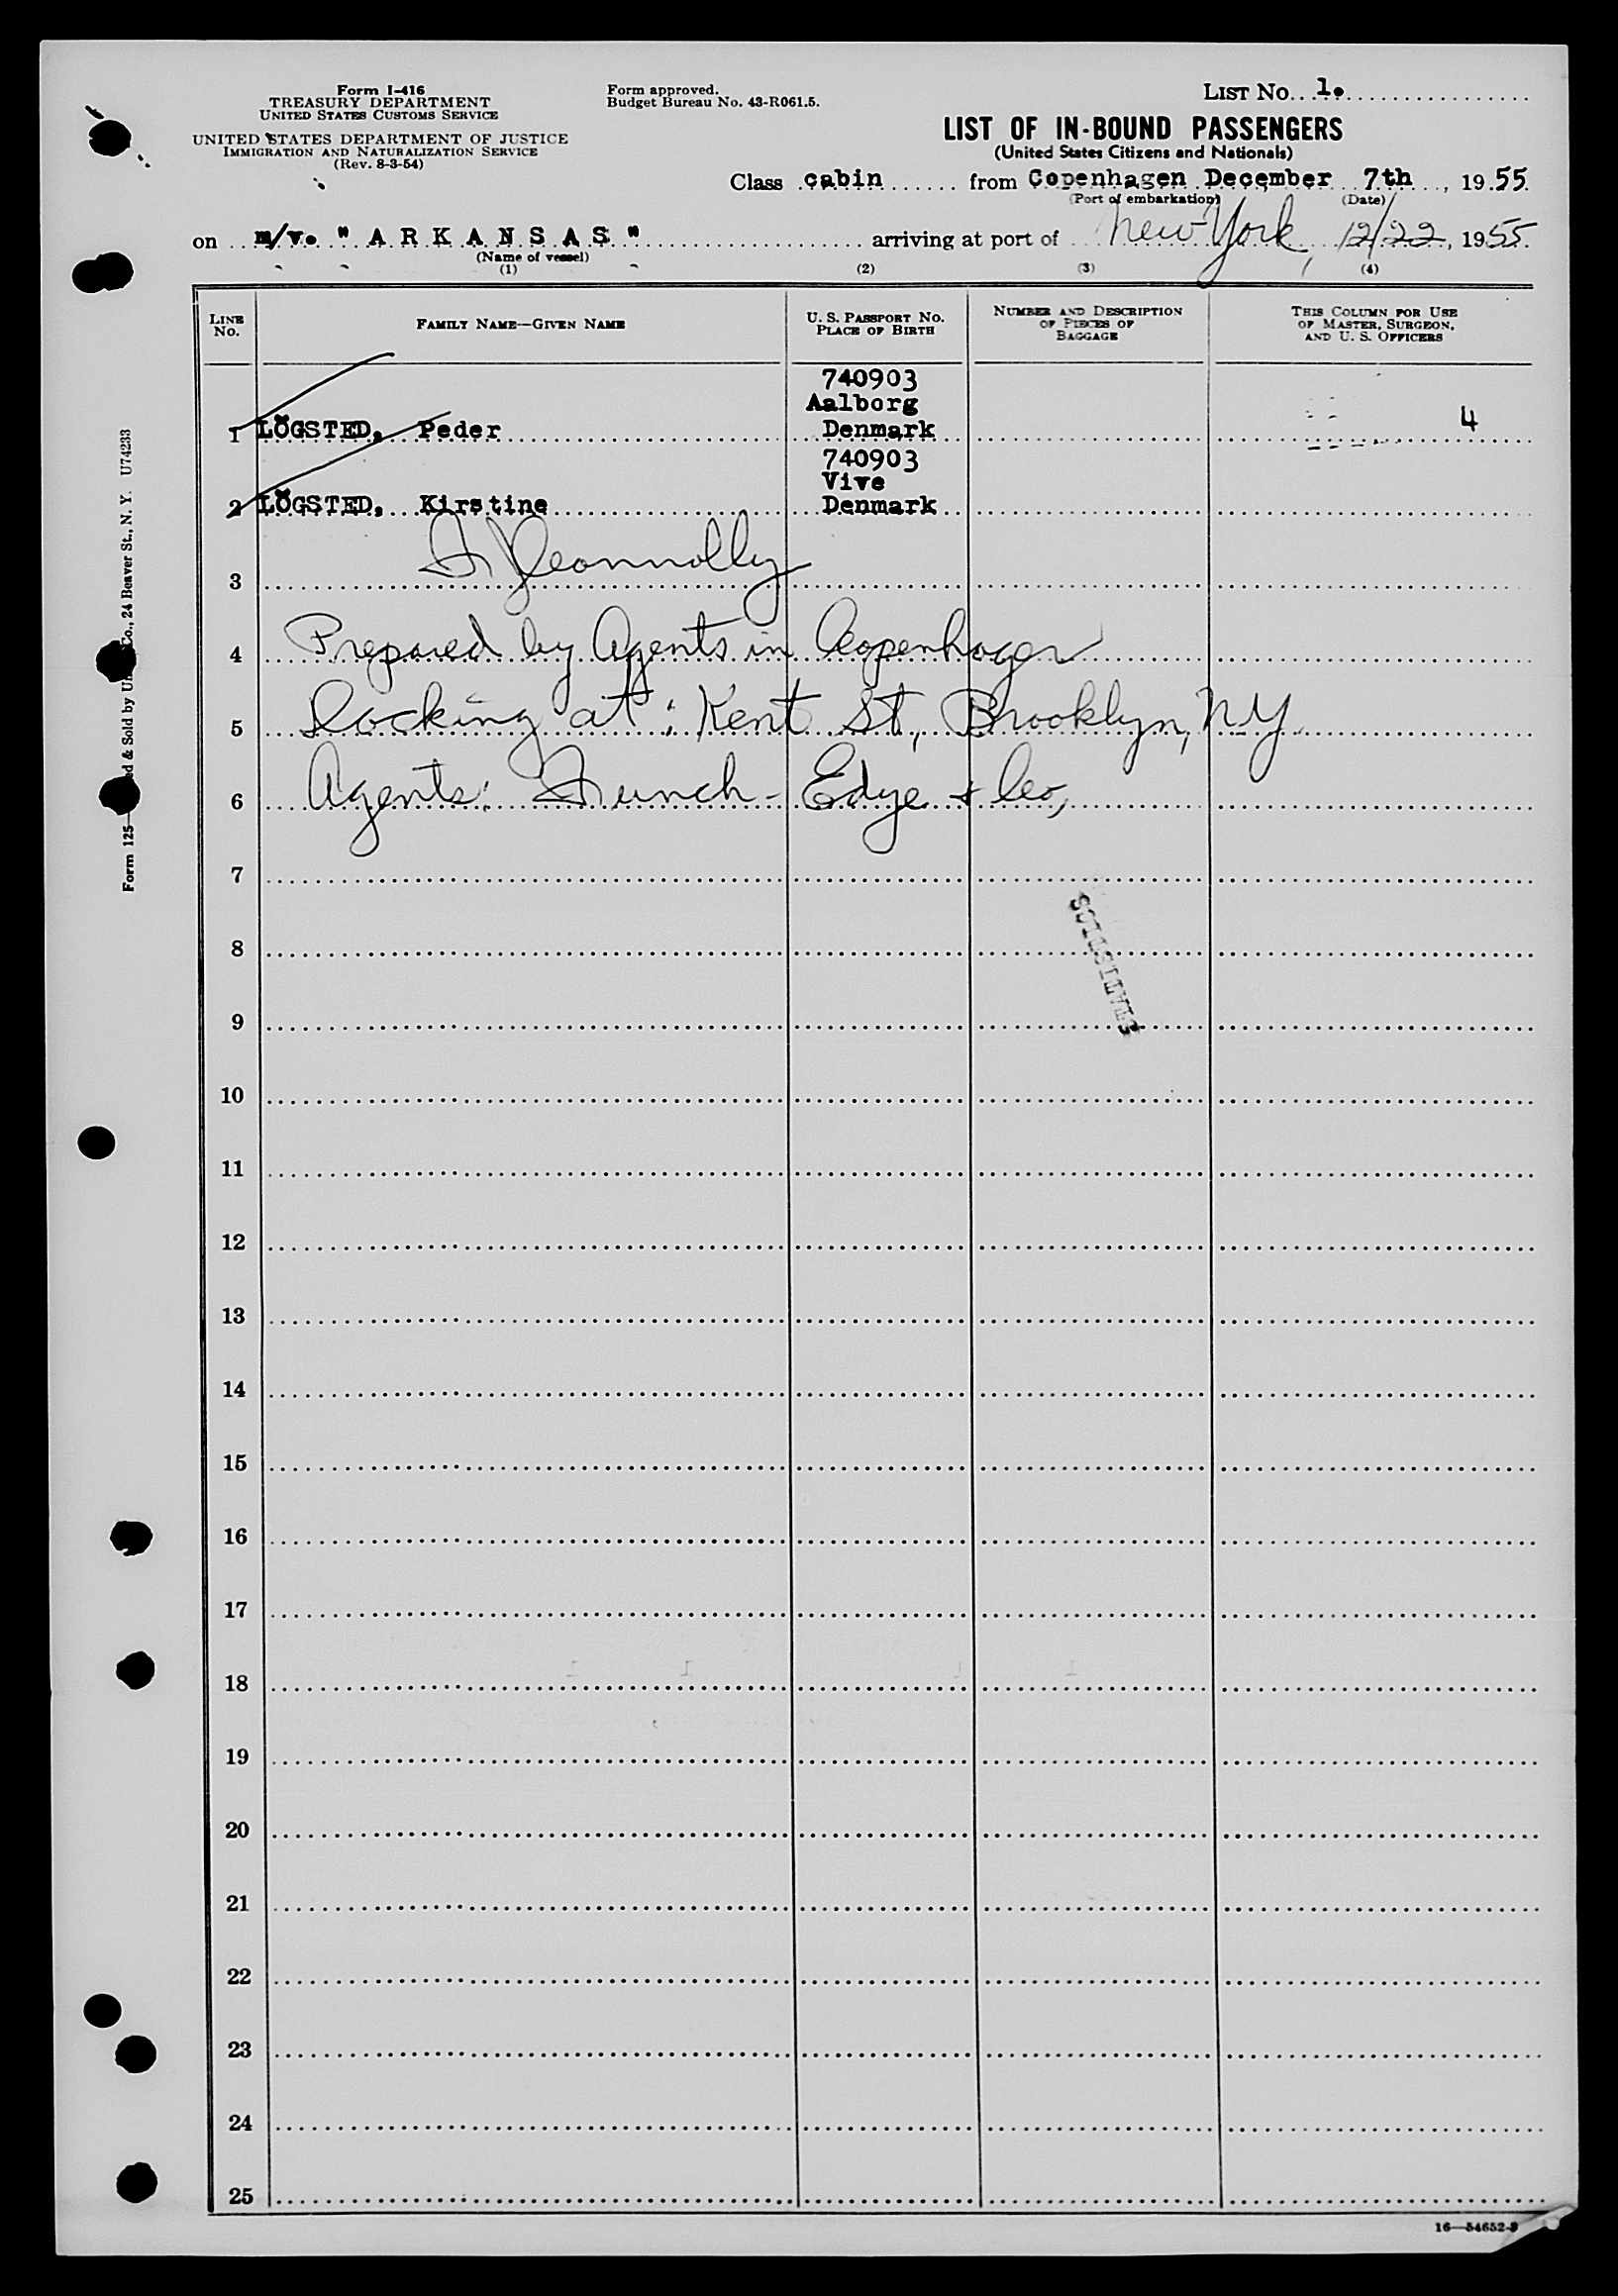 Form I-416
TREASURY DEPARTMENT
UNITED STATES CUSTOMS SERVICE
UNITED STATES DEPARTMENT OF JUSTICE
IMMIGRATION AND NATURALIZATION SERVICE
(Rev. 8-3-54)
Form approved.
Budget Bureau No. 43-R061.5.
LIST No. 1.
LIST OF IN-BOUND PASSENGERS
(United States Citizens and Nationals)
Class cabin from Copenhagen December 7th, 1955
(Port of embarkation) (Date)
on m/v. " A R K A N S A S " arriving at port of New York, 12/22, 1955
(Name of vessel)
(1) (2) (3) (4)
LINE No. FAMILY NAME—GIVEN NAME U. S. PASSPORT No. PLACE OF BIRTH NUMBER AND DESCRIPTION OF PIECES OF BAGGAGE THIS COLUMN FOR USE OF MASTER, SURGEON, AND U. S. OFFICERS
740903
Aalborg
1 LÖGSTED, Peder Denmark 4
740903
Vive
2 LÖGSTED, Kirstine Denmark
3 Connolly
4 Prepared by Agents in Copenhagen
5 Docking at: Kent St, Brooklyn, NY
6 Agents: Funch-Edye & Co,
7
8
STATISTICS
9
10
11
12
13
14
15
16
17
18
19
20
21
22
23
24
25
16—54652-3
Form 125— & Sold by Co., 24 Beaver St., N. Y. U74233